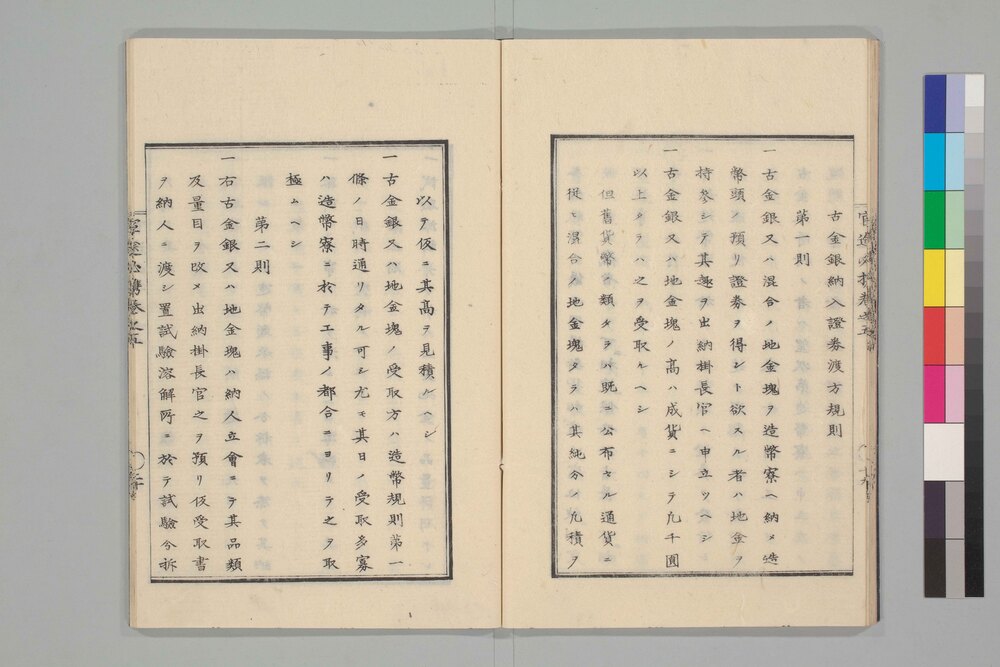 古金銀納入證券渡方規則
第一則
一古金銀又ハ混合ノ地金塊ヲ造幣寮ヘ納メ造
幣頭ノ預リ證券ヲ得ント欲スル者ハ地金ヲ
持參シテ其趣ヲ出納掛長官ヘ申立ツヘシ
一古金銀又ハ地金塊ノ高ハ成貨ニシテ凡千圓
以上タラハ之ヲ受取ルヘシ
但舊貨幣ノ類タラバ既ニ公布セル通貨ニ
從ヒ混合ノ地金塊タラハ其純分ノ凡積ヲ
以テ仮ニ其高ヲ見積ルヘシ
一古金銀又ハ地金塊ノ受取方ハ造幣規則第一
條ノ日時通リタル可シ尤モ其日ノ受取多寡
ハ造幣寮ニ於テ工事ノ都合ニヨリテ之ヲ取
極ムヘシ
第二則
一右古金銀又ハ地金塊ハ納人立會ニテ其品類
及量目ヲ改メ出納掛長官之ヲ預リ仮受取書
ヲ納人ニ渡シ置試驗溶解所ニ於テ試驗分拆